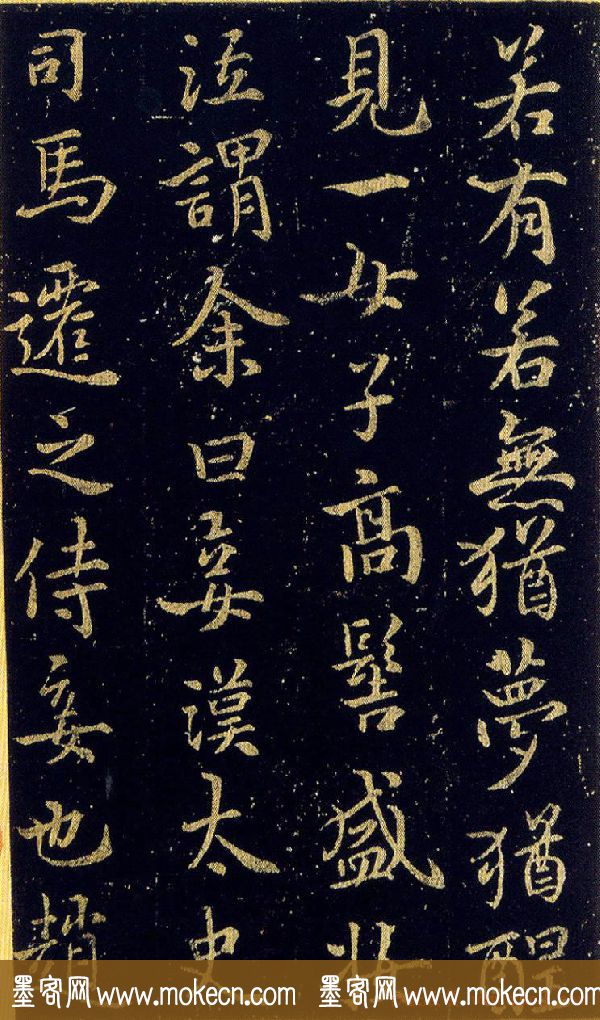 若有若無猶夢猶醒
見一女子高髻盛妝
泣謂余曰妾漢太史
司馬遷之侍妾也趙
墨客网 www.mokecn.com 墨客网 www.mokecn.com